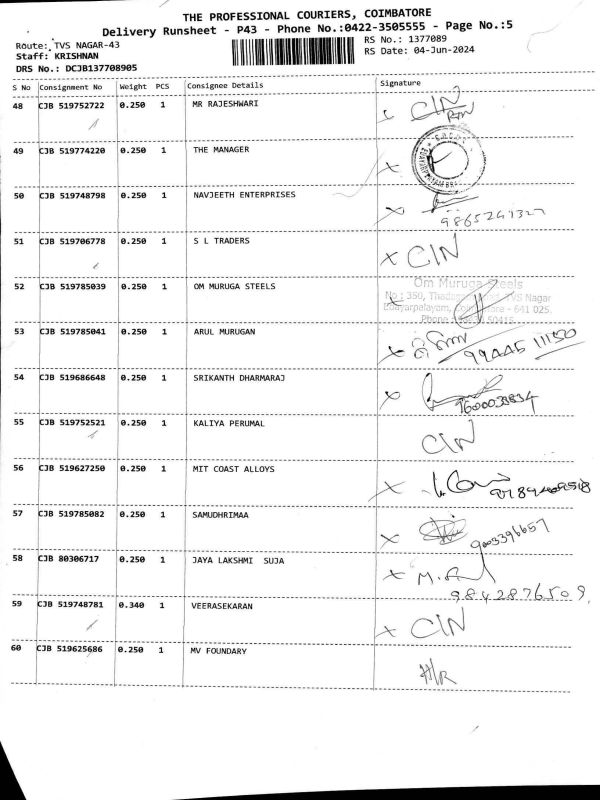 THE PROFESSIONAL COURIERS, COIMBATORE
Delivery Runsheet - P43 - Phone No.:0422-3505555 - Page No.:5
Route: TVS NAGAR-43 RS No.: 1377089
Staff: KRISHNAN RS Date: 04-Jun-2024
DRS No.: DCJB137708905
S No Consignment No Weight PCS Consignee Details Signature
48 CJB 519752722 0.250 1 MR RAJESHWARI CIN
49 CJB 519774220 0.250 1 THE MANAGER X
50 CJB 519748798 0.250 1 NAVJEETH ENTERPRISES X
51 CJB 519706778 0.250 1 S L TRADERS X CIN
52 CJB 519785039 0.250 1 OM MURUGA STEELS
Om Muruga Steels
No.: 350, TVS Nagar
Edayarpalayam, - 641 025.
Phone
53 CJB 519785041 0.250 1 ARUL MURUGAN X 99445 11150
54 CJB 519686648 0.250 1 SRIKANTH DHARMARAJ X 9600038834
55 CJB 519752521 0.250 1 KALIYA PERUMAL CIN
56 CJB 519627250 0.250 1 MIT COAST ALLOYS X
57 CJB 519785082 0.250 1 SAMUDHRIMAA X 9003396657
58 CJB 80306717 0.250 1 JAYA LAKSHMI SUJA X
9842876509
59 CJB 519748781 0.340 1 VEERASEKARAN X CIN
60 CJB 519625686 0.250 1 MV FOUNDARY H/R